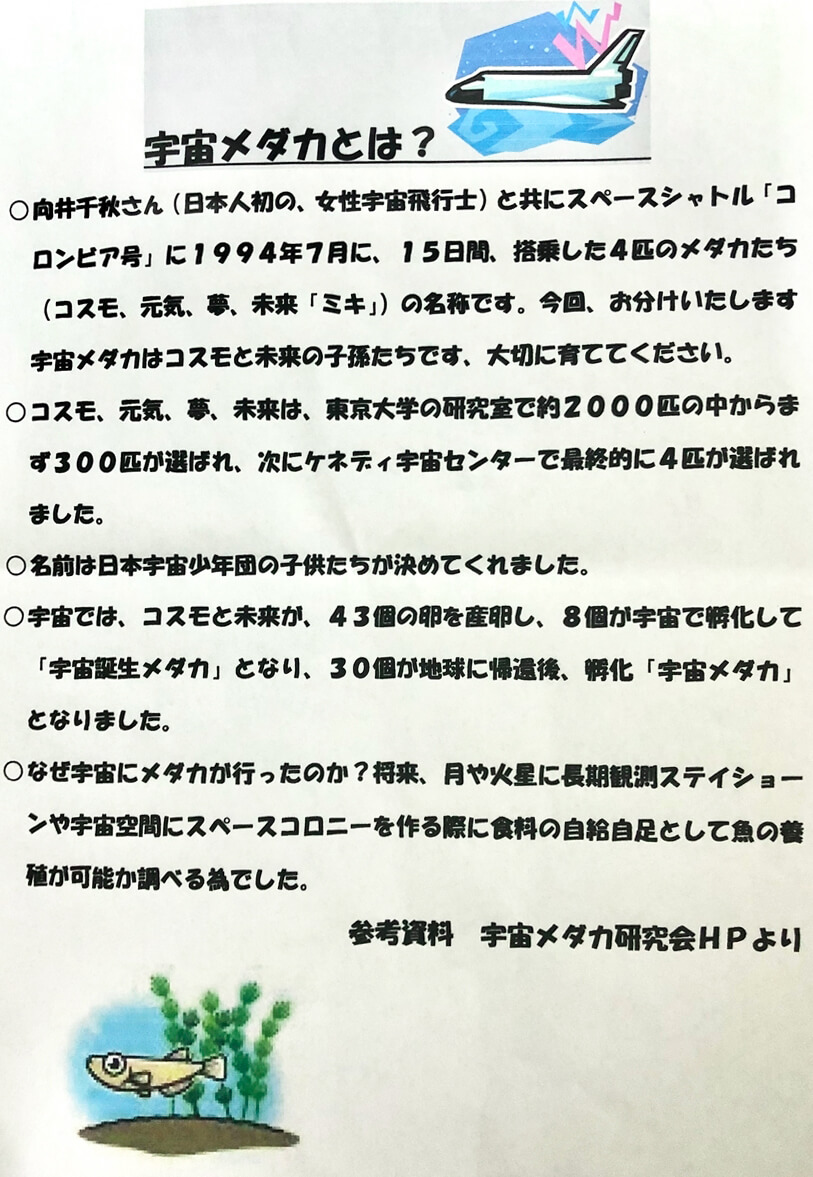 宇宙メダカとは？
○向井千秋さん（日本人初の、女性宇宙飛行士）と共にスペースシャトル「コ
ロンビア号」に１９９４年７月に、１５日間、搭乗した４匹のメダカたち
（コスモ、元気、夢、未来「ミキ」）の名称です。今回、お分けいたします
宇宙メダカはコスモと未来の子孫たちです、大切に育ててください。
○コスモ、元気、夢、未来は、東京大学の研究室で約２０００匹の中からま
ず３００匹が選ばれ、次にケネディ宇宙センターで最終的に４匹が選ばれ
ました。
○名前は日本宇宙少年団の子供たちが決めてくれました。
○宇宙では、コスモと未来が、４３個の卵を産卵し、８個が宇宙で孵化して
「宇宙誕生メダカ」となり、３０個が地球に帰還後、孵化「宇宙メダカ」
となりました。
○なぜ宇宙にメダカが行ったのか？将来、月や火星に長期観測ステイショー
ンや宇宙空間にスペースコロニーを作る際に食料の自給自足として魚の養
殖が可能か調べる為でした。
参考資料　宇宙メダカ研究会ＨＰより